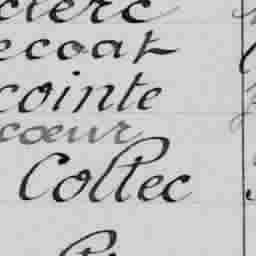 clerc
ecoat
cointe
cœur
Collec